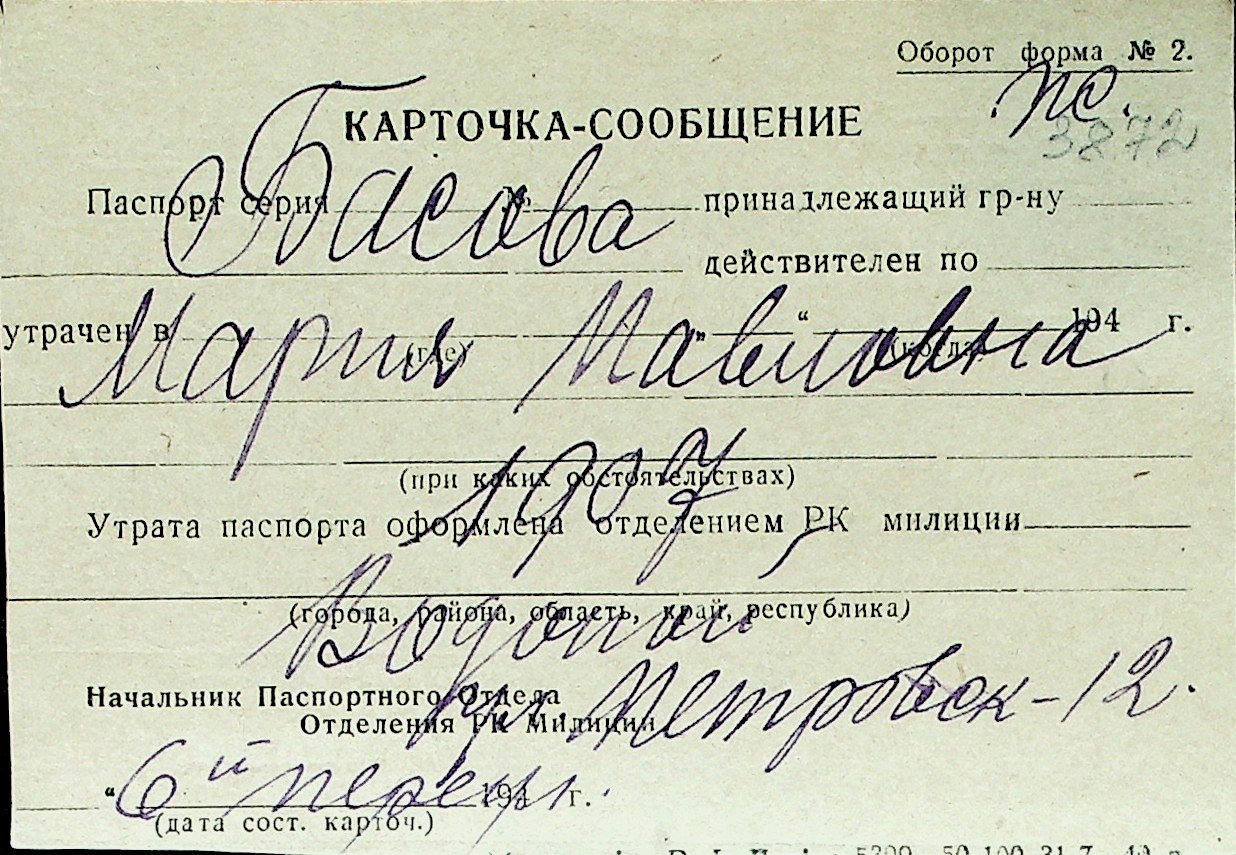 Оборот форма № 2.
пс.
КАРТОЧКА-СООБЩЕНИЕ
3872
Паспорт серия № принадлежащий гр-ну
Басова
действителен по
утрачен в " " 194 г.
(где) (когда)
Мария Павловна
(при каких обстоятельствах)
1907
Утрата паспорта оформлена отделением РК милиции
(города, района, область, край, республика)
Водопой
Начальник Паспортного Отдела
Отделения РК Милиции
Петровск-12.
" 194 г.
6й переул.
(дата сост. карточ.)